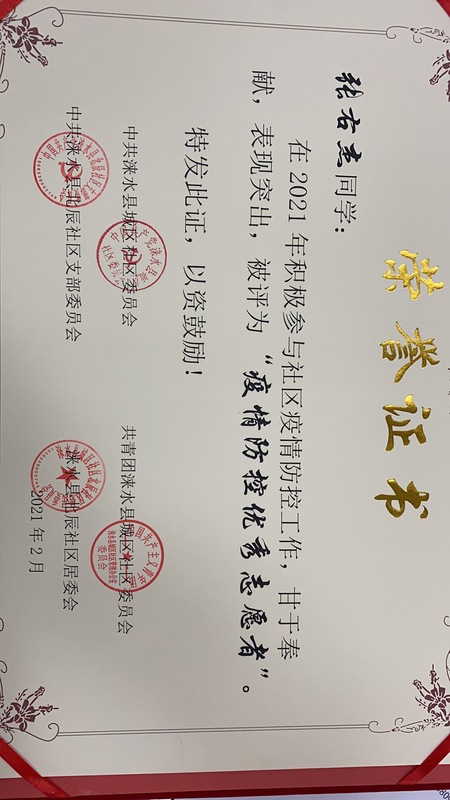 荣誉证书
张右杰同学：
在2021年积极参与社区疫情防控工作，甘于奉
献，表现突出，被评为“疫情防控优秀志愿者”。
特发此证，以资鼓励！
中共涞水县城区社区委员会
共青团涞水县城区社区委员会
中共涞水县北辰社区支部委员会
涞水县北辰社区居委会
2021年2月